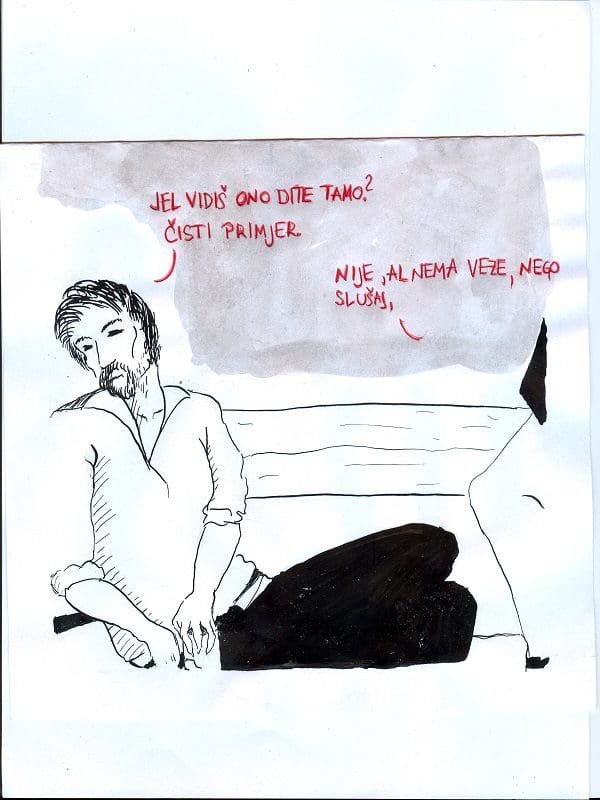 JEL VIDIŠ ONO DITE TAMO?
ČISTI PRIMJER.
NIJE, AL NEMA VEZE, NEGO
SLUŠAJ,